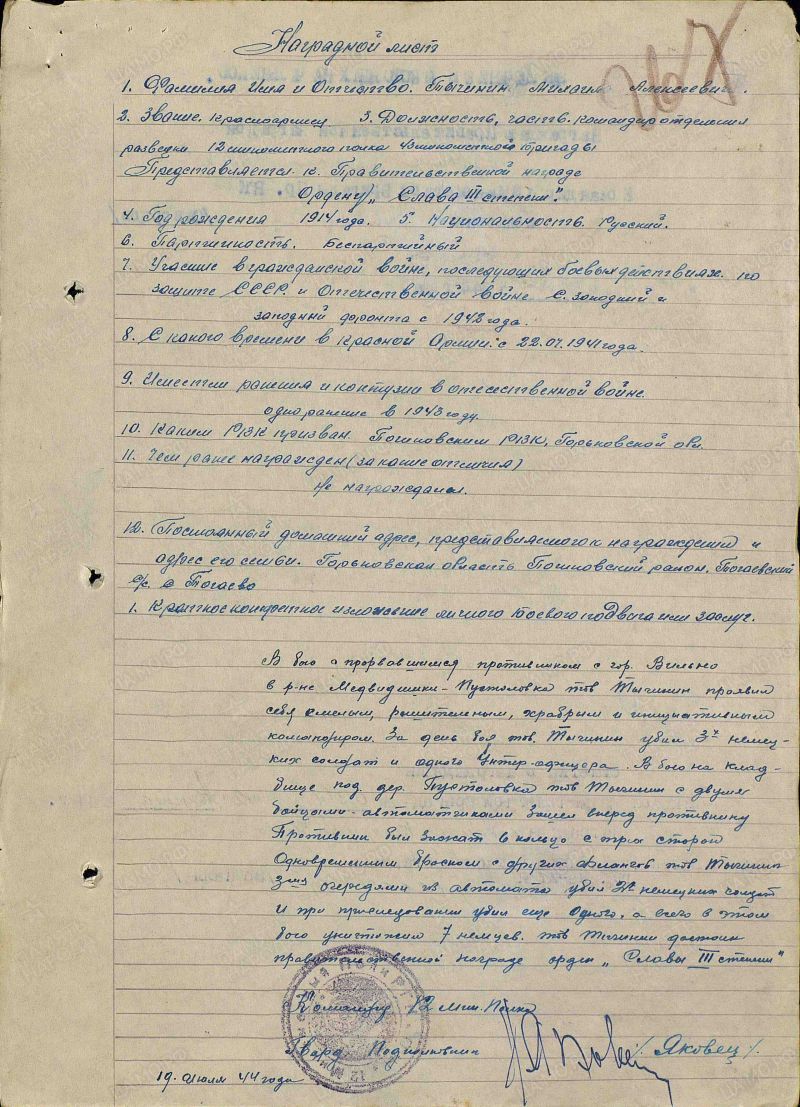 Наградной лист
267
1. Фамилия Имя и Отчество. Тычинин Михаил Алексеевич.
2. Звание. Красноармеец 3. Должность, часть. командир отделения
разведки 12 минометного полка 43 минометной бригады
Представляется к. Правительственной награде
Ордену „Слава III степени".
4. Год рождения 1914 года. 5. Национальность. Русский.
6. Партийность. Беспартийный
7. Участие в гражданской войне, последующих боевых действиях по
защите СССР. и Отечественной войне С. западный и
западный фронта с 1942 года.
8. С какого времени в Красной Армии: с 22.07.1941 года.
9. Имеет ли ранения и контузии в отечественной войне.
одно ранение в 1943 году.
10. Каким РВК призван. Починковским РВК, Горьковской обл.
11. Чем ранее награжден (за какие отличия)
Не награждался.
12. Постоянный домашний адрес, представляемого к награждению и
адрес его семьи. Горьковская область Починковский район,
с/с. с
1. Краткое конкретное изложение личного боевого подвига или заслуг.
В бою с прорвавшимся противником с гор. Вильно
в р-не Медвидишки - Пустоловка тов Тычинин проявил
себя смелым, решительным, храбрым и инициативным
командиром. За день боя тов. Тычинин убил 3х немец-
ких солдат и одного Унтер-офицера. В бою на клад-
бище под дер. Пустоловка тов Тычинин с двумя
бойцами-автоматчиками зашел вперед противнику
Противник был зажат в кольцо с трех сторон
Одновременным броском с других флангов тов Тычинин
очередями из автомата убил немецких солдат
и при преследовании убил еще одного, а всего в этом
бою уничтожил 7 немцев. тов Тычинин достоин
правительственной награде орден „Славы III степени"
Командир 12 Мин. Полка
Гвард. Подполковник /. Яковец /.
19. Июля 44 года